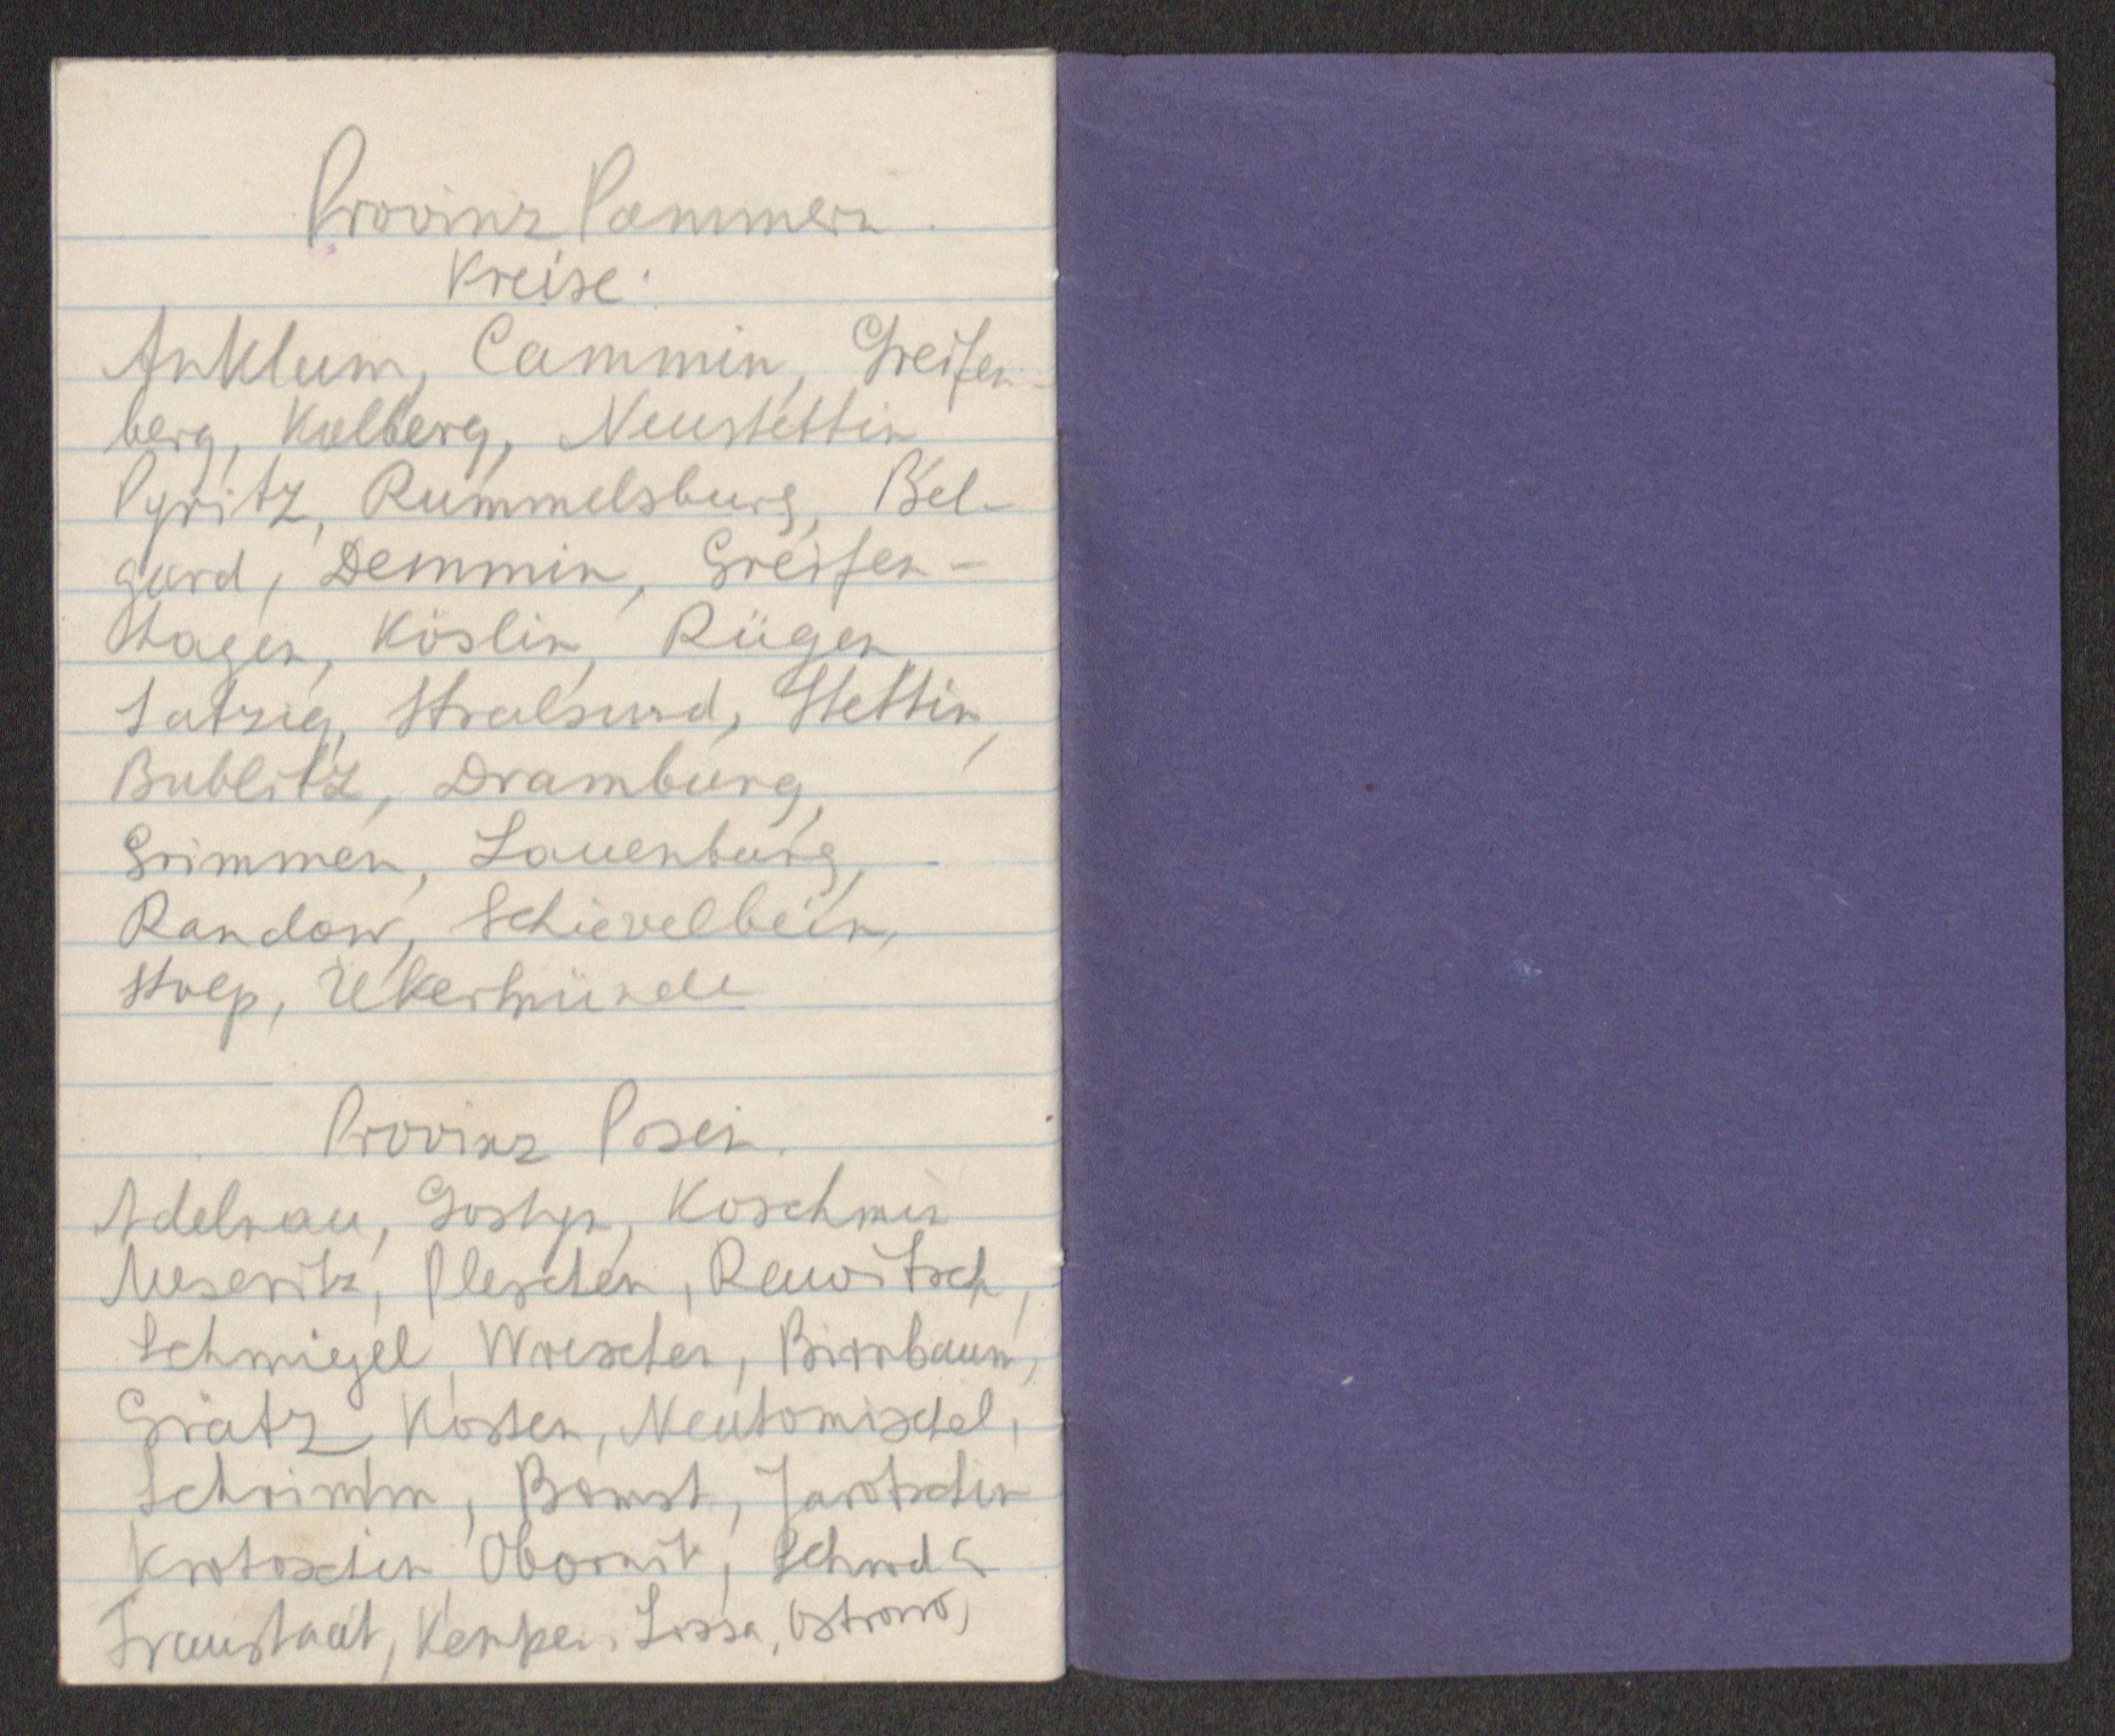 Provinz Pommern.
Kreise:
Anklum, Cammin, Greifen-
berg, Kolberg, Neustettin
Pyritz, Rummelsburg, Bel-
gard, Demmin, Greifen-
hagen, Köslin, Rügen
Satzig, Stralsund, Stettin,
Bublitz, Dramburg,
Grimmen, Lauenburg,
Randow, Schievelbein,
Stolp, Ukermünde
Provinz Posen.
Adelnau, Gostyn, Koschmin
Meseritz, Pleschen, Rawitsch,
Schmiegel, Wreschen, Birnbaum,
Grätz, Kosten, Neutomischel,
Schrimm, Bomst, Jarotschin
Krotoschin, Obornik, Schroda
Fraustadt, Kempen, Lissa, Ostrowo,